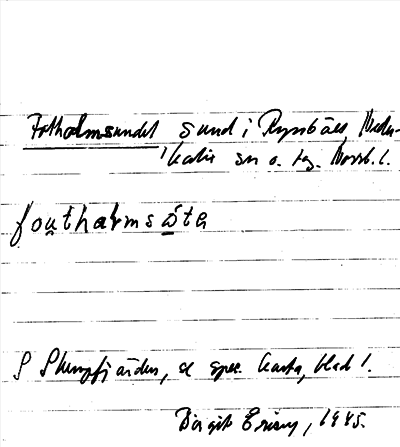 Fotholmsundet sund i Ryssbält, Neder-
kalix sn o. tg. Norrb. l.
foutharmsåta
S Skempfjärden, se spec. karta, blad 1.
Birgit Eriung, 1945.